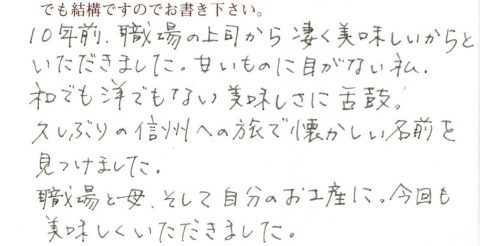 でも結構ですのでお書き下さい。
10年前、職場の上司から凄く美味しいからと
いただきました。甘いものに目がない私.
和でも洋でもない美味しさに舌鼓。
久しぶりの信州への旅で懐かしい名前を
見つけました。
職場と母、そして自分のお土産に。今回も
美味しくいただきました。